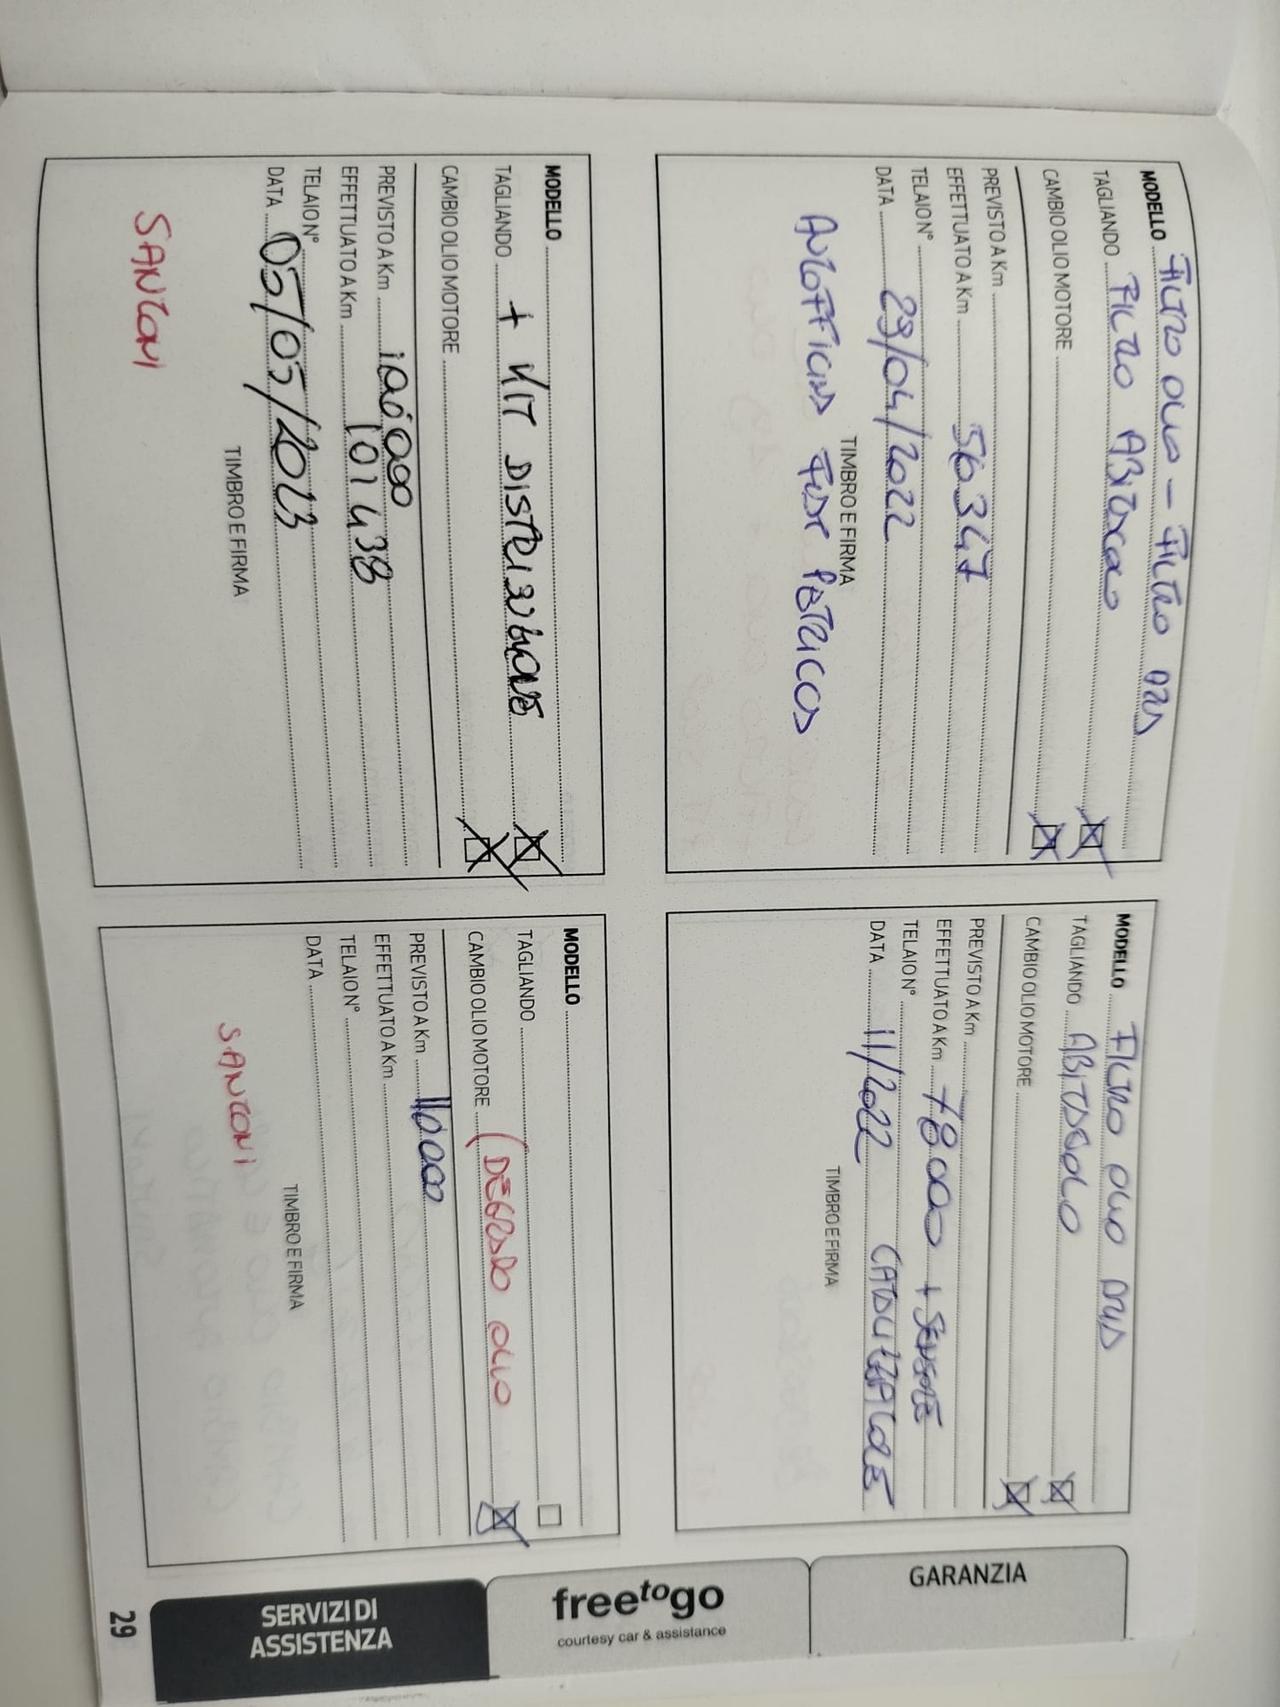 MODELLO FILTRO OLIO - FILTRO ARIA
TAGLIANDO FILTRO ABITACOLO
CAMBIO OLIO MOTORE
PREVISTO A Km
EFFETTUATO A Km 56347
TELAIO N°
DATA 29/04/2022
TIMBRO E FIRMA
AUTOFFICINA
MODELLO FILTRO OLIO ARIA
TAGLIANDO ABITACOLO
CAMBIO OLIO MOTORE
PREVISTO A Km
EFFETTUATO A Km 78000 + SENSORE
TELAIO N°
DATA 11/2022 CATALIZZATORE
TIMBRO E FIRMA
MODELLO
TAGLIANDO + KIT DISTRIBUZIONE
CAMBIO OLIO MOTORE
PREVISTO A Km
EFFETTUATO A Km 101438
TELAIO N°
DATA 05/05/2023
TIMBRO E FIRMA
SANTONI
MODELLO
TAGLIANDO
CAMBIO OLIO MOTORE (DEGRADO OLIO
PREVISTO A Km 110000
EFFETTUATO A Km
TELAIO N°
DATA
TIMBRO E FIRMA
SANTONI
GARANZIA
freetogo
courtesy car & assistance
SERVIZI DI
ASSISTENZA
29